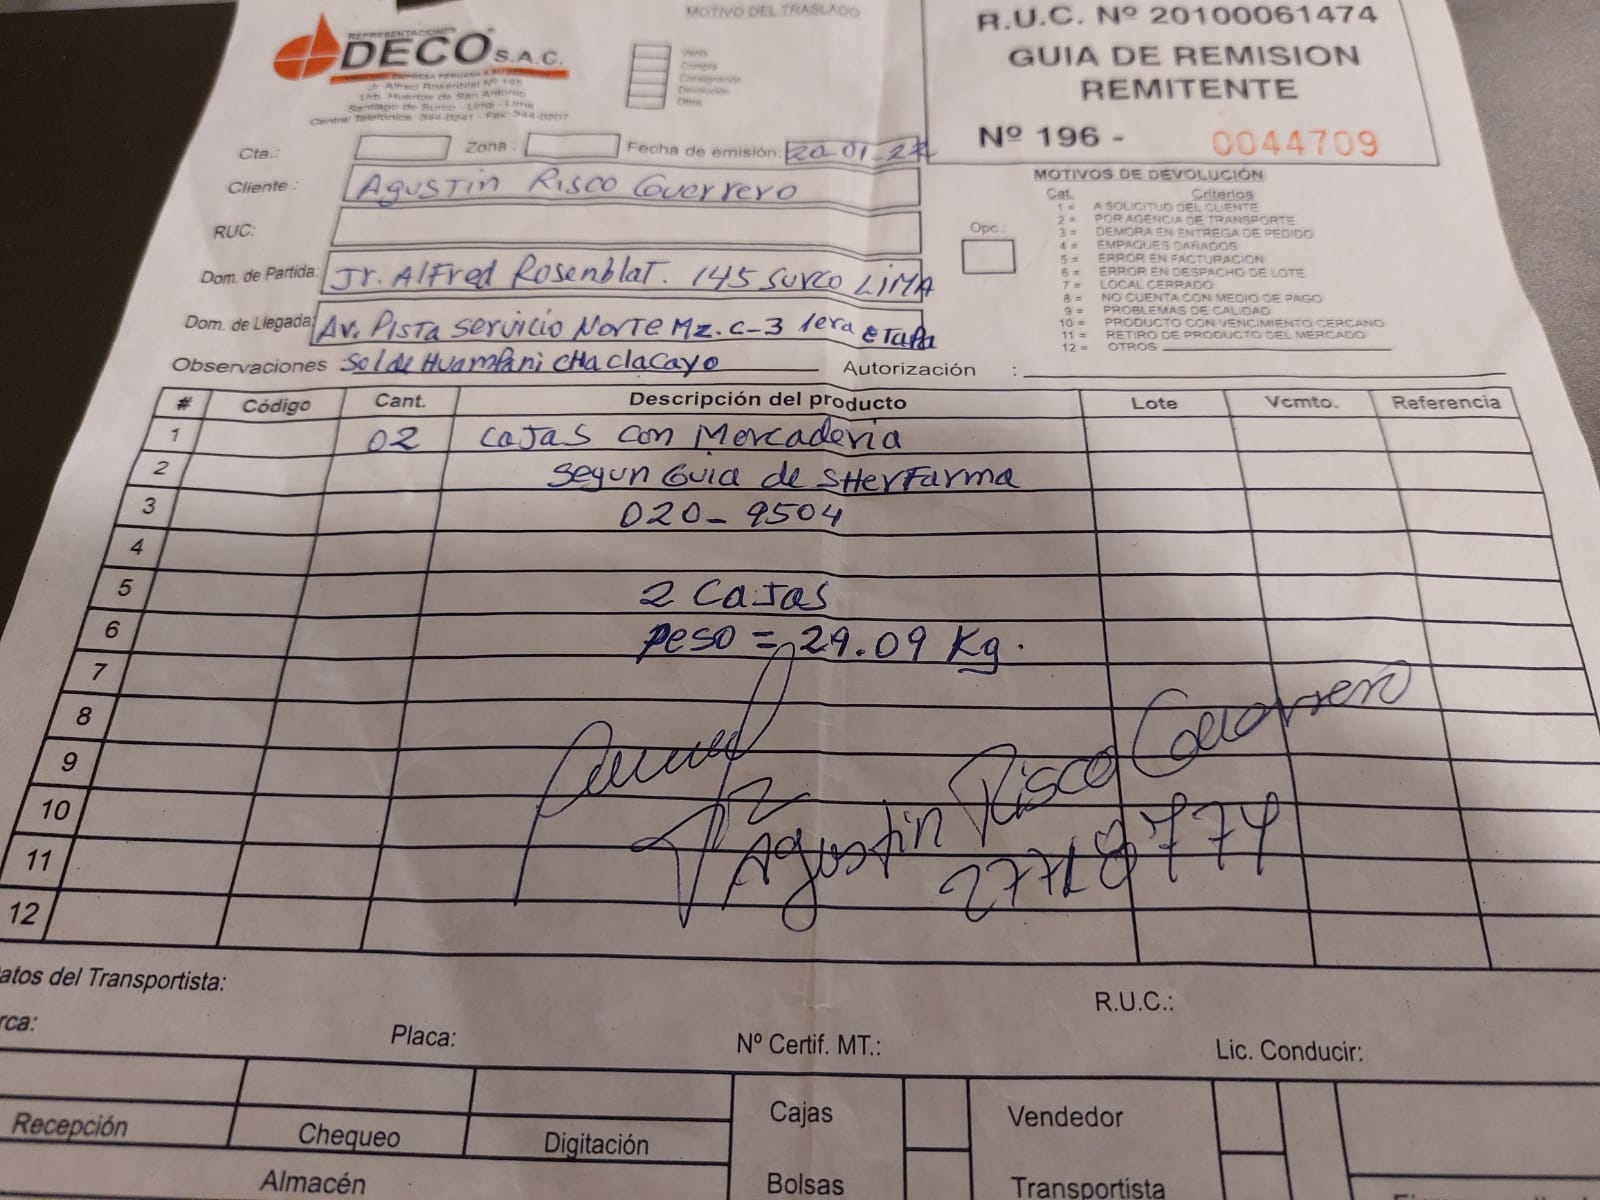 REPRESENTACIONES
DECO S.A.C.
Jr. Alfred Rosenblat Nº 145
Urb. Huertos de San Antonio
Santiago de Surco - Lima - Lima
Central Telefónica: 344-0241 - Fax: 344-0207
MOTIVO DEL TRASLADO
Venta
Compra
Consignación
Devolución
Otros
R.U.C. Nº 20100061474
GUIA DE REMISION
REMITENTE
Nº 196 - 0044709
Cta.: Zona : Fecha de emisión: 20-01-22
Cliente : Agustin Risco Guerrero
RUC:
Dom. de Partida: Jr. Alfred Rosenblat. 145 Surco LIMA
Dom. de Llegada: Av. Pista Servicio Norte Mz. C-3 1era etapa
Observaciones Sol de Huampani CHaclacayo Autorización :
MOTIVOS DE DEVOLUCIÓN
Cat. Criterios
1 = A SOLICITUD DEL CLIENTE
2 = POR AGENCIA DE TRANSPORTE
3 = DEMORA EN ENTREGA DE PEDIDO
4 = EMPAQUES DAÑADOS
5 = ERROR EN FACTURACION
6 = ERROR EN DESPACHO DE LOTE
7 = LOCAL CERRADO
8 = NO CUENTA CON MEDIO DE PAGO
9 = PROBLEMAS DE CALIDAD
10 = PRODUCTO CON VENCIMIENTO CERCANO
11 = RETIRO DE PRODUCTO DEL MERCADO
12 = OTROS
Opc.:
# Código Cant. Descripción del producto Lote Vcmto. Referencia
1 02 cajas con Mercaderia
2 segun Guia de SHerfarma
3 020-9504
4
5 2 Cajas
6 peso = 29.09 Kg.
7
8
9
10
11
12
Agustin Risco Guerrero
27718774
atos del Transportista:
R.U.C.:
rca:
Placa:
Nº Certif. MT.:
Lic. Conducir:
Recepción Chequeo Digitación
Cajas Vendedor
Almacén Bolsas Transportista